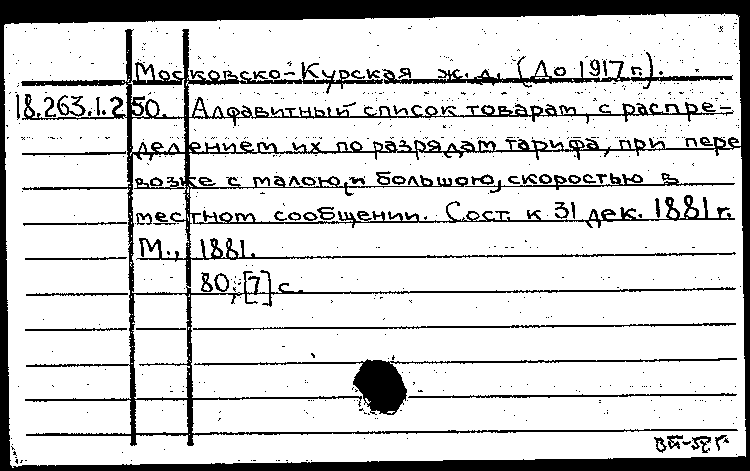 Московско-Курская ж.д. (До 1917 г.).
18.263.1.250. Алфавитный список товарам, с распре-
делением их по разрядам тарифа, при пере
возке с малою, и большою, скоростью в
местном сообщении. Сост. к 31 дек. 1881 г.
М., 1881.
80, [7] с.